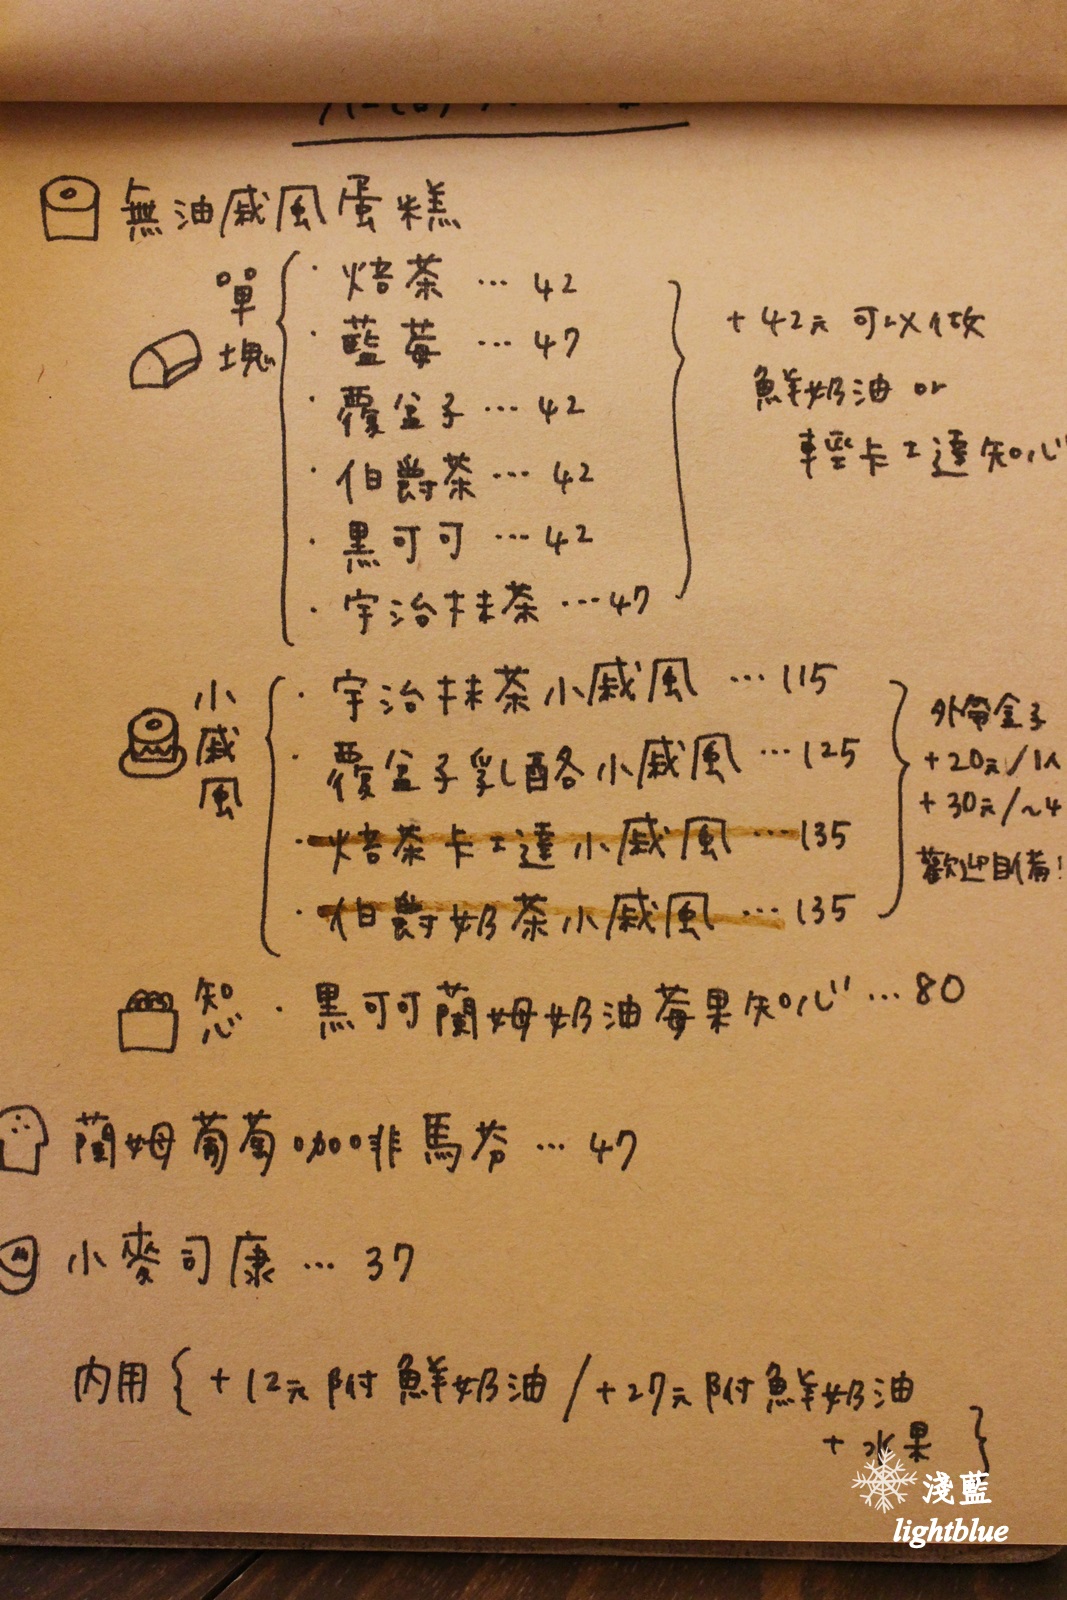 無油戚風蛋糕
單塊
· 焙茶 … 42
· 藍莓 … 47
· 覆盆子 … 42
· 伯爵茶 … 42
· 黑可可 … 42
· 宇治抹茶 … 47
+42元 可以做
鮮奶油 or
輕卡士達知心
小戚風
· 宇治抹茶小戚風 … 115
· 覆盆子乳酪小戚風 … 125
· 焙茶卡士達小戚風 … 135
· 伯爵奶茶小戚風 … 135
外帶盒子
+20元/1入
+30元/~4
歡迎自備!
知心
· 黑可可蘭姆奶油莓果知心 … 80
蘭姆葡萄咖啡馬芬 … 47
小麥司康 … 37
內用 { +12元附鮮奶油 / +27元附鮮奶油
+ 水果 }
淺藍
lightblue